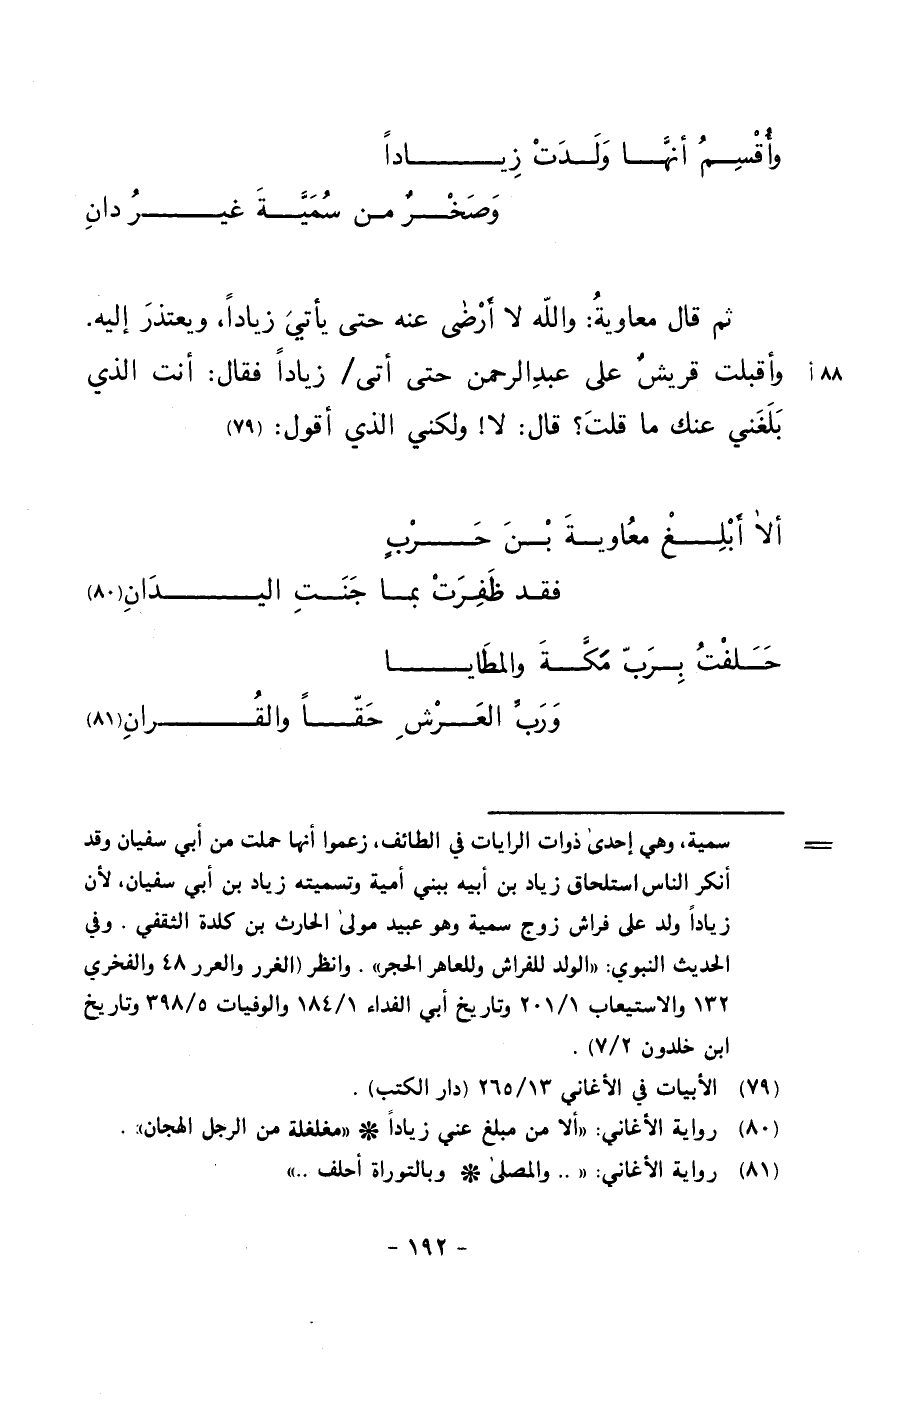 وأُقْسِمُ أنهَّا وَلَدَتْ زِيـاداً
وَصَخْرٌ من سُمَيَّةَ غيرُ دانِ
ثم قال معاويةُ: واللّه لا أَرْضٰى عنه حتى يأتيَ زياداً، ويعتذرَ إليه.
٨٨ أ وأقبلت قريشٌ على عبدِالرحمن حتى أتى/ زياداً فقال: أنت الذي
بَلَغَني عنك ما قلتَ؟ قال: لا! ولكني الذي أقول: (٧٩)
ألاٰ أَبْلِغْ معُاويةَ بْنَ حَرْبٍ
فقد ظَفِرَتْ بما جَنَتِ اليدَانِ(٨٠)
حَلفْتُ بِرَبّ مَكَّةَ والمطَايا
وَرَبِّ العَرْشِ حَقّاً والقُرانِ(٨١)
= سمية، وهي إحدىٰ ذوات الرايات في الطائف، زعموا أنها حملت من أبي سفيان وقد
أنكر الناس استلحاق زياد بن أبيه ببني أمية وتسميته زياد بن أبي سفيان، لأن
زياداً ولد على فراش زوج سمية وهو عبيد مولىٰ الحارث بن كلدة الثقفي . وفي
الحديث النبوي: «الولد للفراش وللعاهر الحجر» . وانظر (الغرر والعرر ٤٨ والفخري
١٣٢ والاستيعاب ٢٠١/١ وتاريخ أبي الفداء ١٨٤/١ والوفيات ٣٩٨/٥ وتاريخ
ابن خلدون ٧/٢) .
(٧٩) الأبيات في الأغاني ٢٦٥/١٣ (دار الكتب) .
(٨٠) رواية الأغاني: «ألا من مبلغ عني زياداً * «مغلغلة من الرجل الهجان» .
(٨١) رواية الأغاني: « .. والمصلىٰ * وبالتوراة أحلف ..»
- ١٩٢ -